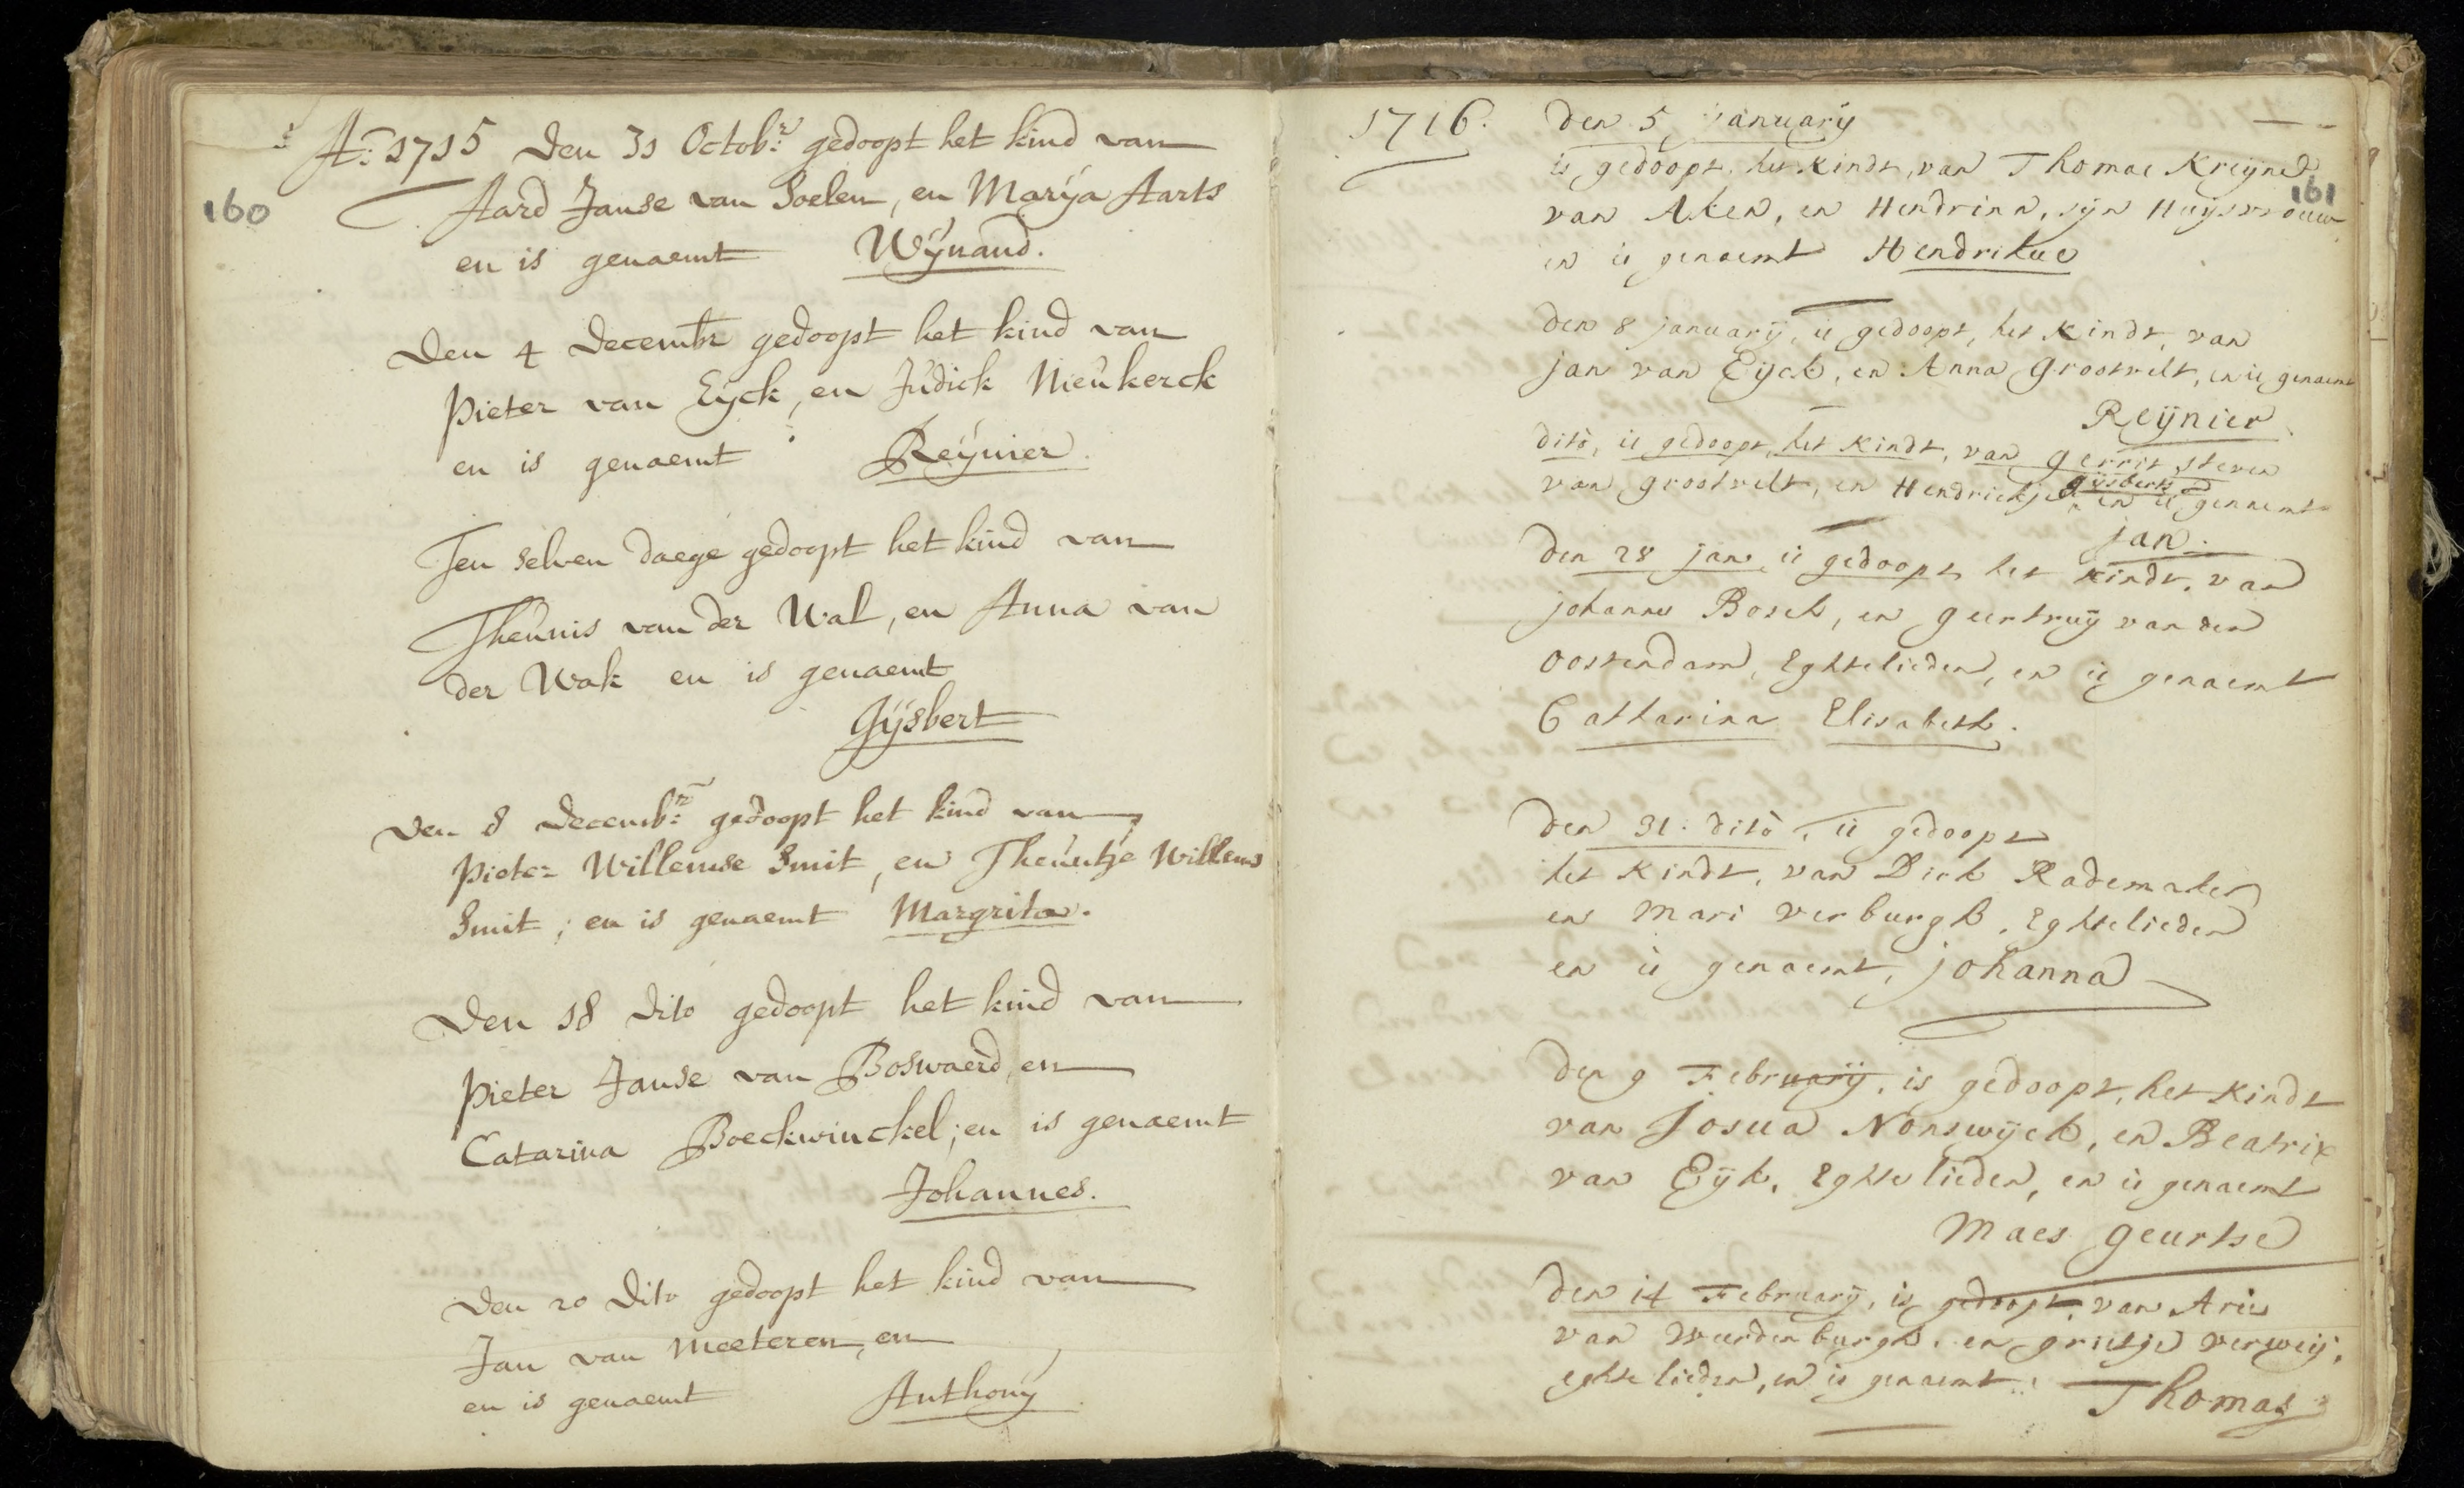 160
A:o 1715 Den 31 Octob:r gedoopt het kind van
Aard Janse van Soelen, en Marÿa Aarts
en is genaemt Wÿnand.
Den 4 Decembr gedoopt het kind van
Pieter van Eÿck, en Judick Nieukerck
en is genaemt Reÿnier.
Ten selven daege gedoopt het kind van
Theunis van der Wal, en Anna van
der Wak en is genaemt
Gÿsbert
Den 8 Decemb:r gedoopt het kind van
Pieter Willemse Smit, en Theuntje Willems
Smit; en is genaemt Margrita.
Den 18 Dito gedoopt het kind van
Pieter Janse van Boswaerd, en
Catarina Boeckwinckel; en is genaemt
Johannes.
Den 20 Dito gedoopt het kind van
Jan van Meeteren, en
en is genaemt Anthonÿ
161
1716. Den 5 January
is gedoopt, het Kindt, van Thomas Kreÿns
van Aken, en Hendrina, sÿn Huÿsvrouw
en is genaemt Hendrikus
Den 8 januarÿ, is gedoopt, het Kindt, van
jan van Eijck, en Anna Grootvelt, en is genaemt
Reÿnier
dito, is gedoopt, het Kindt, van Gerrit Steven
van Grootvelt, en Hendrickje gijsberts en is genaemt
jan.
Den 28 jan, is gedoopt het Kindt, van
johannes Bosch, en Geertruÿ van den
Oostendam, Eghtelieden, en is genaemt
Catharina Elisabeth.
Den 31. dito, is gedoopt
het Kindt, van Dirk Rademaker
en Mari Verburgh, Eghtelieden
en is genaemt, johanna
Den 9 Februarÿ, is gedoopt, het Kindt
van Josua Nonswÿck, en Beatrix
van Eÿk, Eghtelieden, en is genaemt
Maes Geurtse
Den 14 February, is gedoopt, van Aries
van Wuerdenburgh. en grietje verweij,
eghtelieden, en is genaemt.. Thomas